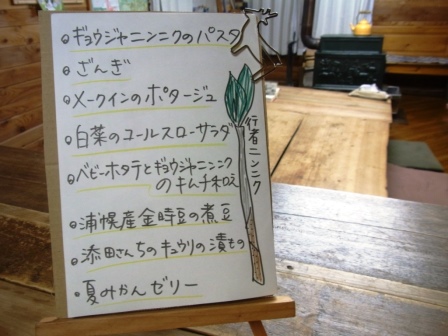 ギョウジャニンニクのパスタ
ざんぎ
メークインのポタージュ
白菜のコールスローサラダ
ベビーホタテとギョウジャニンニク
のキムチ和え
浦幌産金時豆の煮豆
添田さんちのキュウリの漬もの
夏みかんゼリー
行者ニンニク